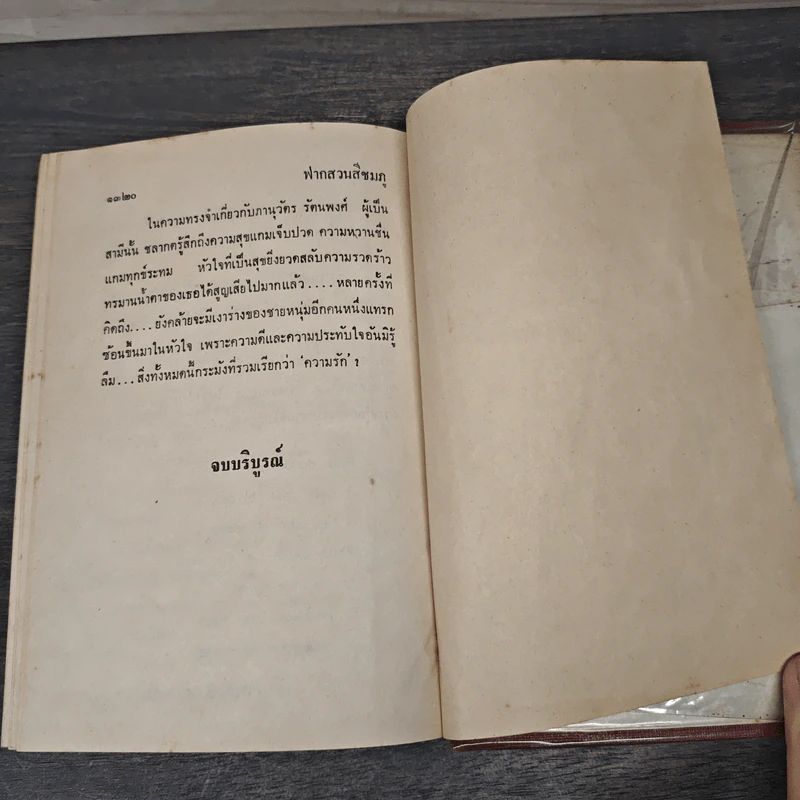 ฟากสวนสีชมภู
๑๓๒๐
ในความทรงจำเกี่ยวกับภานุวัตร รัตนพงศ์ ผู้เป็น
สามีนั้น ชลากตรู้สึกถึงความสุขแกมเจ็บปวด ความหวานชื่น
แกมทุกข์ระทม หัวใจที่เป็นสุขยิ่งยวดสลับความรวดร้าว
ทรมานน้ำตาของเธอได้สูญเสียไปมากแล้ว....หลายครั้งที่
คิดถึง....ยังคล้ายจะมีเงาร่างของชายหนุ่มอีกคนหนึ่งแทรก
ซ้อนขึ้นมาในหัวใจ เพราะความดีและความประทับใจอันมิรู้
ลืม...สิ่งทั้งหมดนี้กระมังที่รวมเรียกว่า ‘ความรัก’ ?
จบบริบูรณ์